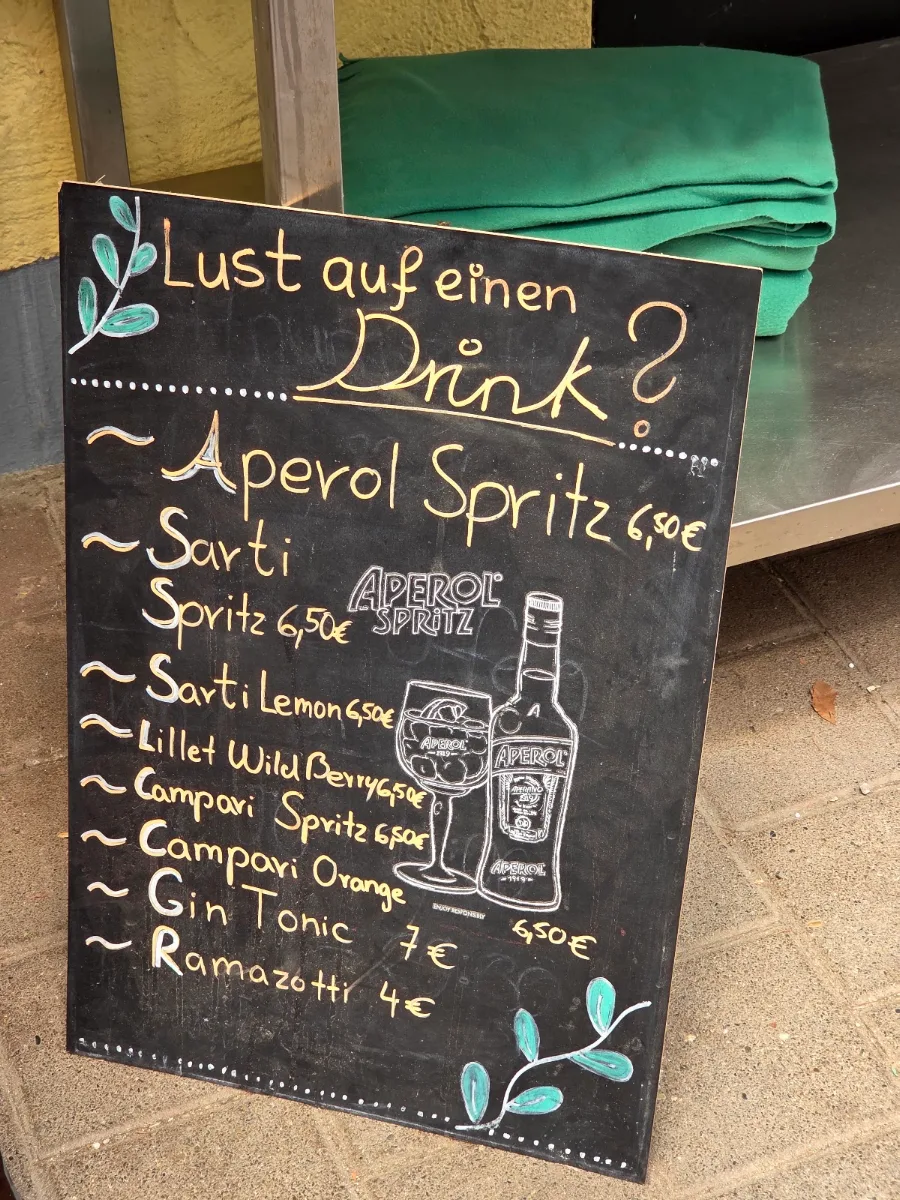 Lust auf einen
Drink?
~ Aperol Spritz 6,50€
~ Sarti
Spritz 6,50€
APEROL
SPRITZ
~ Sarti Lemon 6,50€
~ Lillet Wild Berry 6,50€
~ Campari Spritz 6,50€
~ Campari Orange 6,50€
~ Gin Tonic 7€
~ Ramazotti 4€
APEROL
1919
APEROL
APEROL
1919